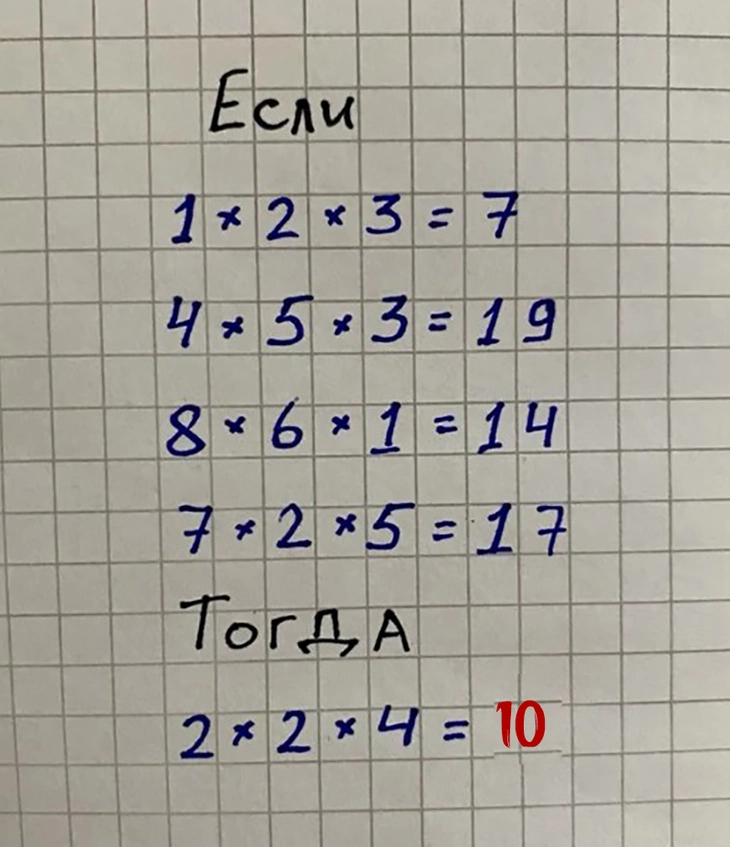 Если
1 × 2 × 3 = 7
4 × 5 × 3 = 19
8 × 6 × 1 = 14
7 × 2 × 5 = 17
Тогда
2 × 2 × 4 = 10